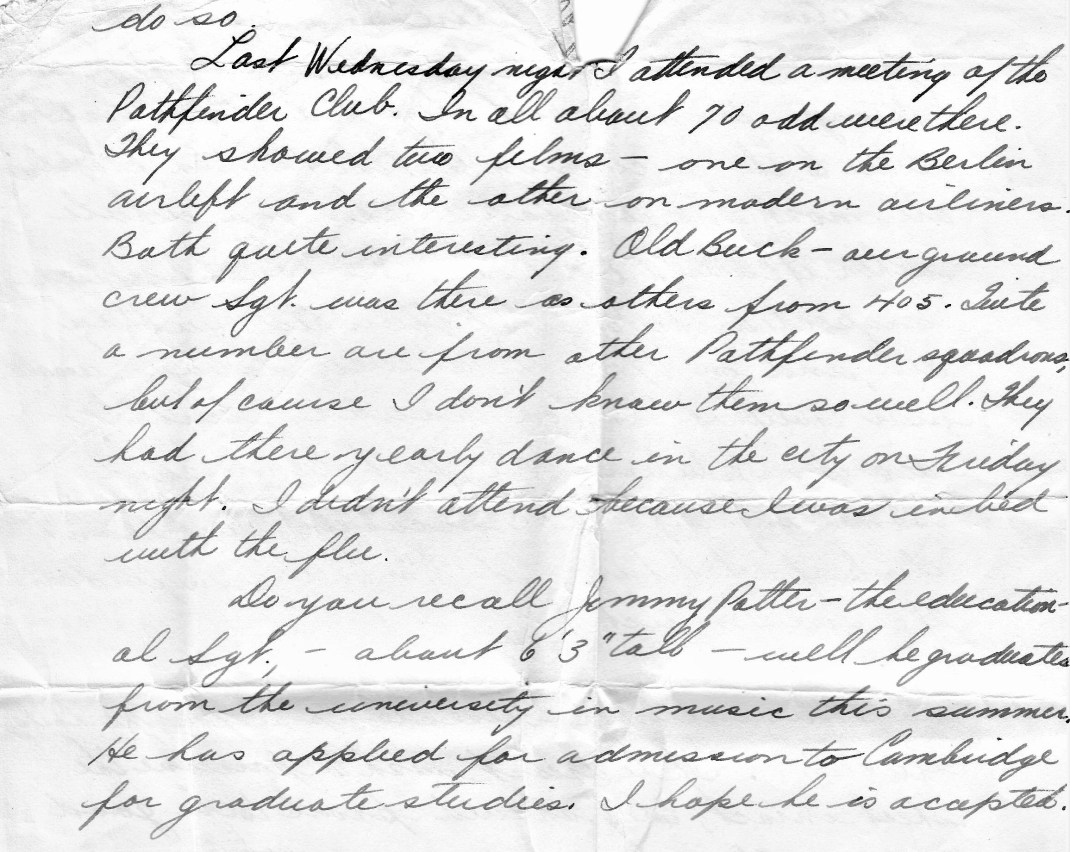 do so.
Last Wednesday night I attended a meeting of the
Pathfinder Club. In all about 70 odd were there.
They showed two films - one on the Berlin
airlift and the other on modern airliners.
Both quite interesting. Old Buck - our ground
crew Sgt. was there as others from 405. Quite
a number are from other Pathfinder squadrons,
but of course I don't know them so well. They
had there yearly dance in the city on Friday
night. I didn't attend because I was in bed
with the flu.
Do you recall Jimmy Potter - the education-
al Sgt., - about 6'3" tall - well he graduates
from the university in music this summer.
He has applied for admission to Cambridge
for graduate studies. I hope he is accepted.